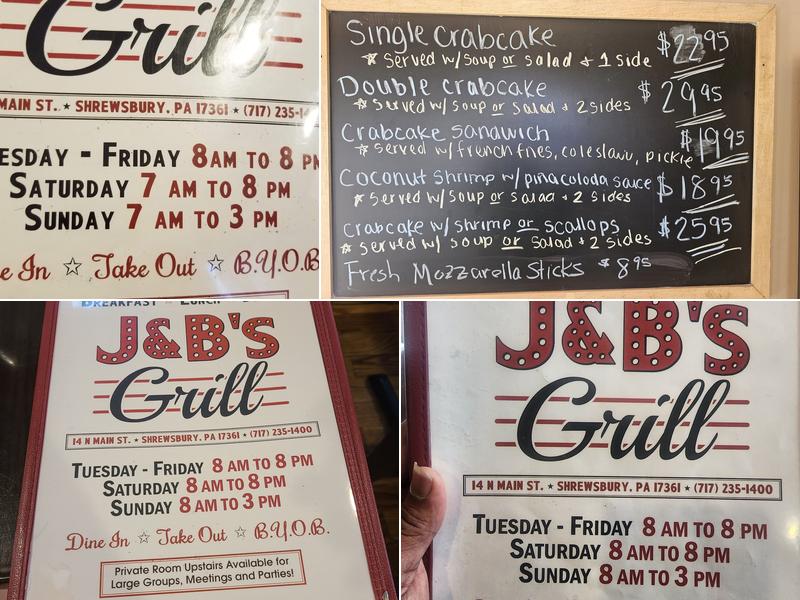 Grill
MAIN ST. ★ SHREWSBURY, PA 17361 ★ (717) 235-14
ESDAY - FRIDAY 8 AM TO 8 PM
SATURDAY 7 AM TO 8 PM
SUNDAY 7 AM TO 3 PM
e In ☆ Take Out ☆ B.Y.O.B
Single crabcake $22.95
* Served w/soup or salad + 1 side
Double crabcake $29.95
* Served w/soup or salad + 2 sides
Crabcake sandwich $19.95
* Served w/french fries, coleslaw, pickle
Coconut shrimp w/pinacoloda sauce $18.95
* Served w/soup or salad + 2 sides
crabcake w/shrimp or scallops $25.95
* Served w/ soup or salad + 2 sides
Fresh Mozzarella Sticks $8.95
BREAKFAST - LUNCH -
J&B'S
Grill
14 N MAIN ST. ★ SHREWSBURY, PA 17361 ★ (717) 235-1400
TUESDAY - FRIDAY 8 AM TO 8 PM
SATURDAY 8 AM TO 8 PM
SUNDAY 8 AM TO 3 PM
Dine In ☆ Take Out ☆ B.Y.O.B.
Private Room Upstairs Available for
Large Groups, Meetings and Parties!
J&B'S
Grill
14 N MAIN ST. ★ SHREWSBURY, PA 17361 ★ (717) 235-1400
TUESDAY - FRIDAY 8 AM TO 8 PM
SATURDAY 8 AM TO 8 PM
SUNDAY 8 AM TO 3 PM